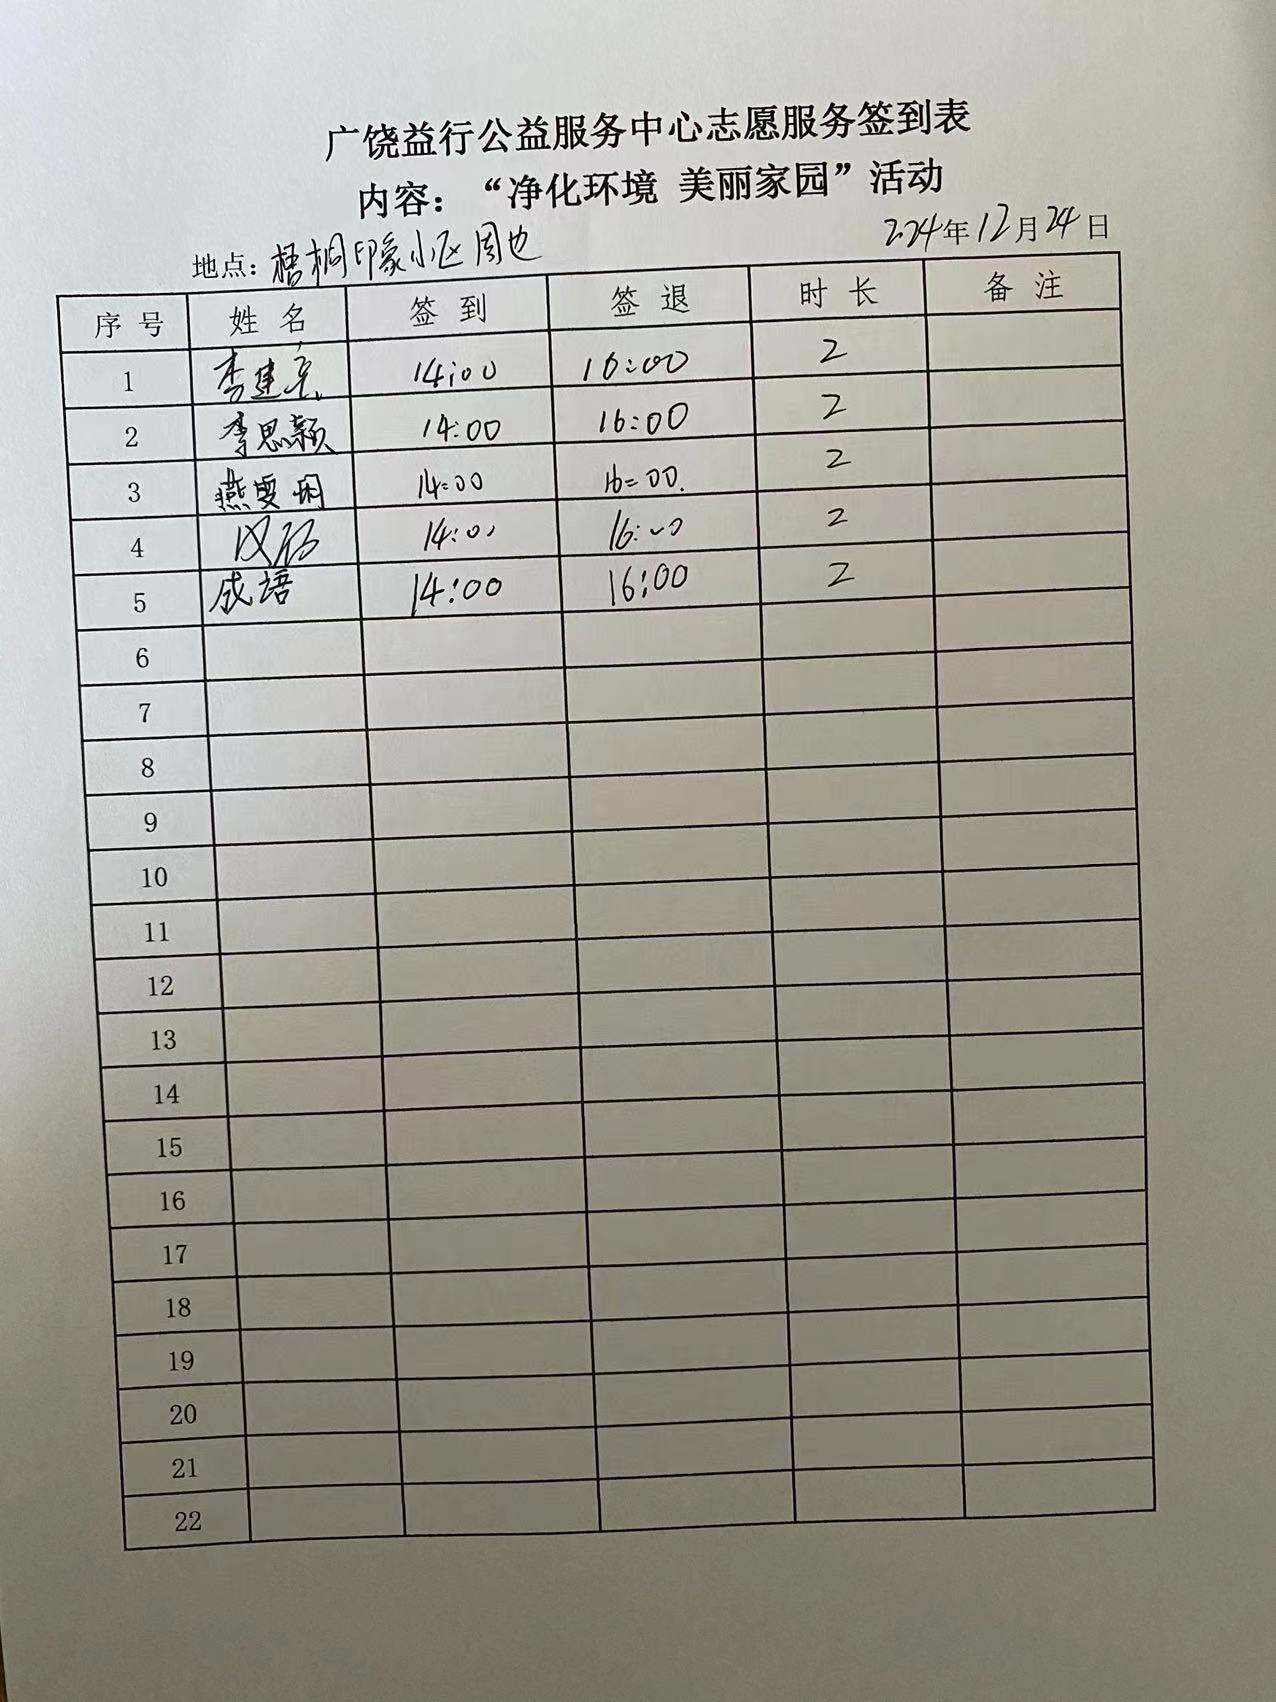 广饶益行公益服务中心志愿服务签到表
内容：“净化环境 美丽家园”活动
地点：梧桐印象小区周边 2024年12月24日
序号 姓名 签到 签退 时长 备注
1 李建 14:00 16:00 2
2 李思颖 14:00 16:00 2
3 燕雯娟 14:00 16:00. 2
4 14:00 16:00 2
5 成语 14:00 16:00 2
6
7
8
9
10
11
12
13
14
15
16
17
18
19
20
21
22